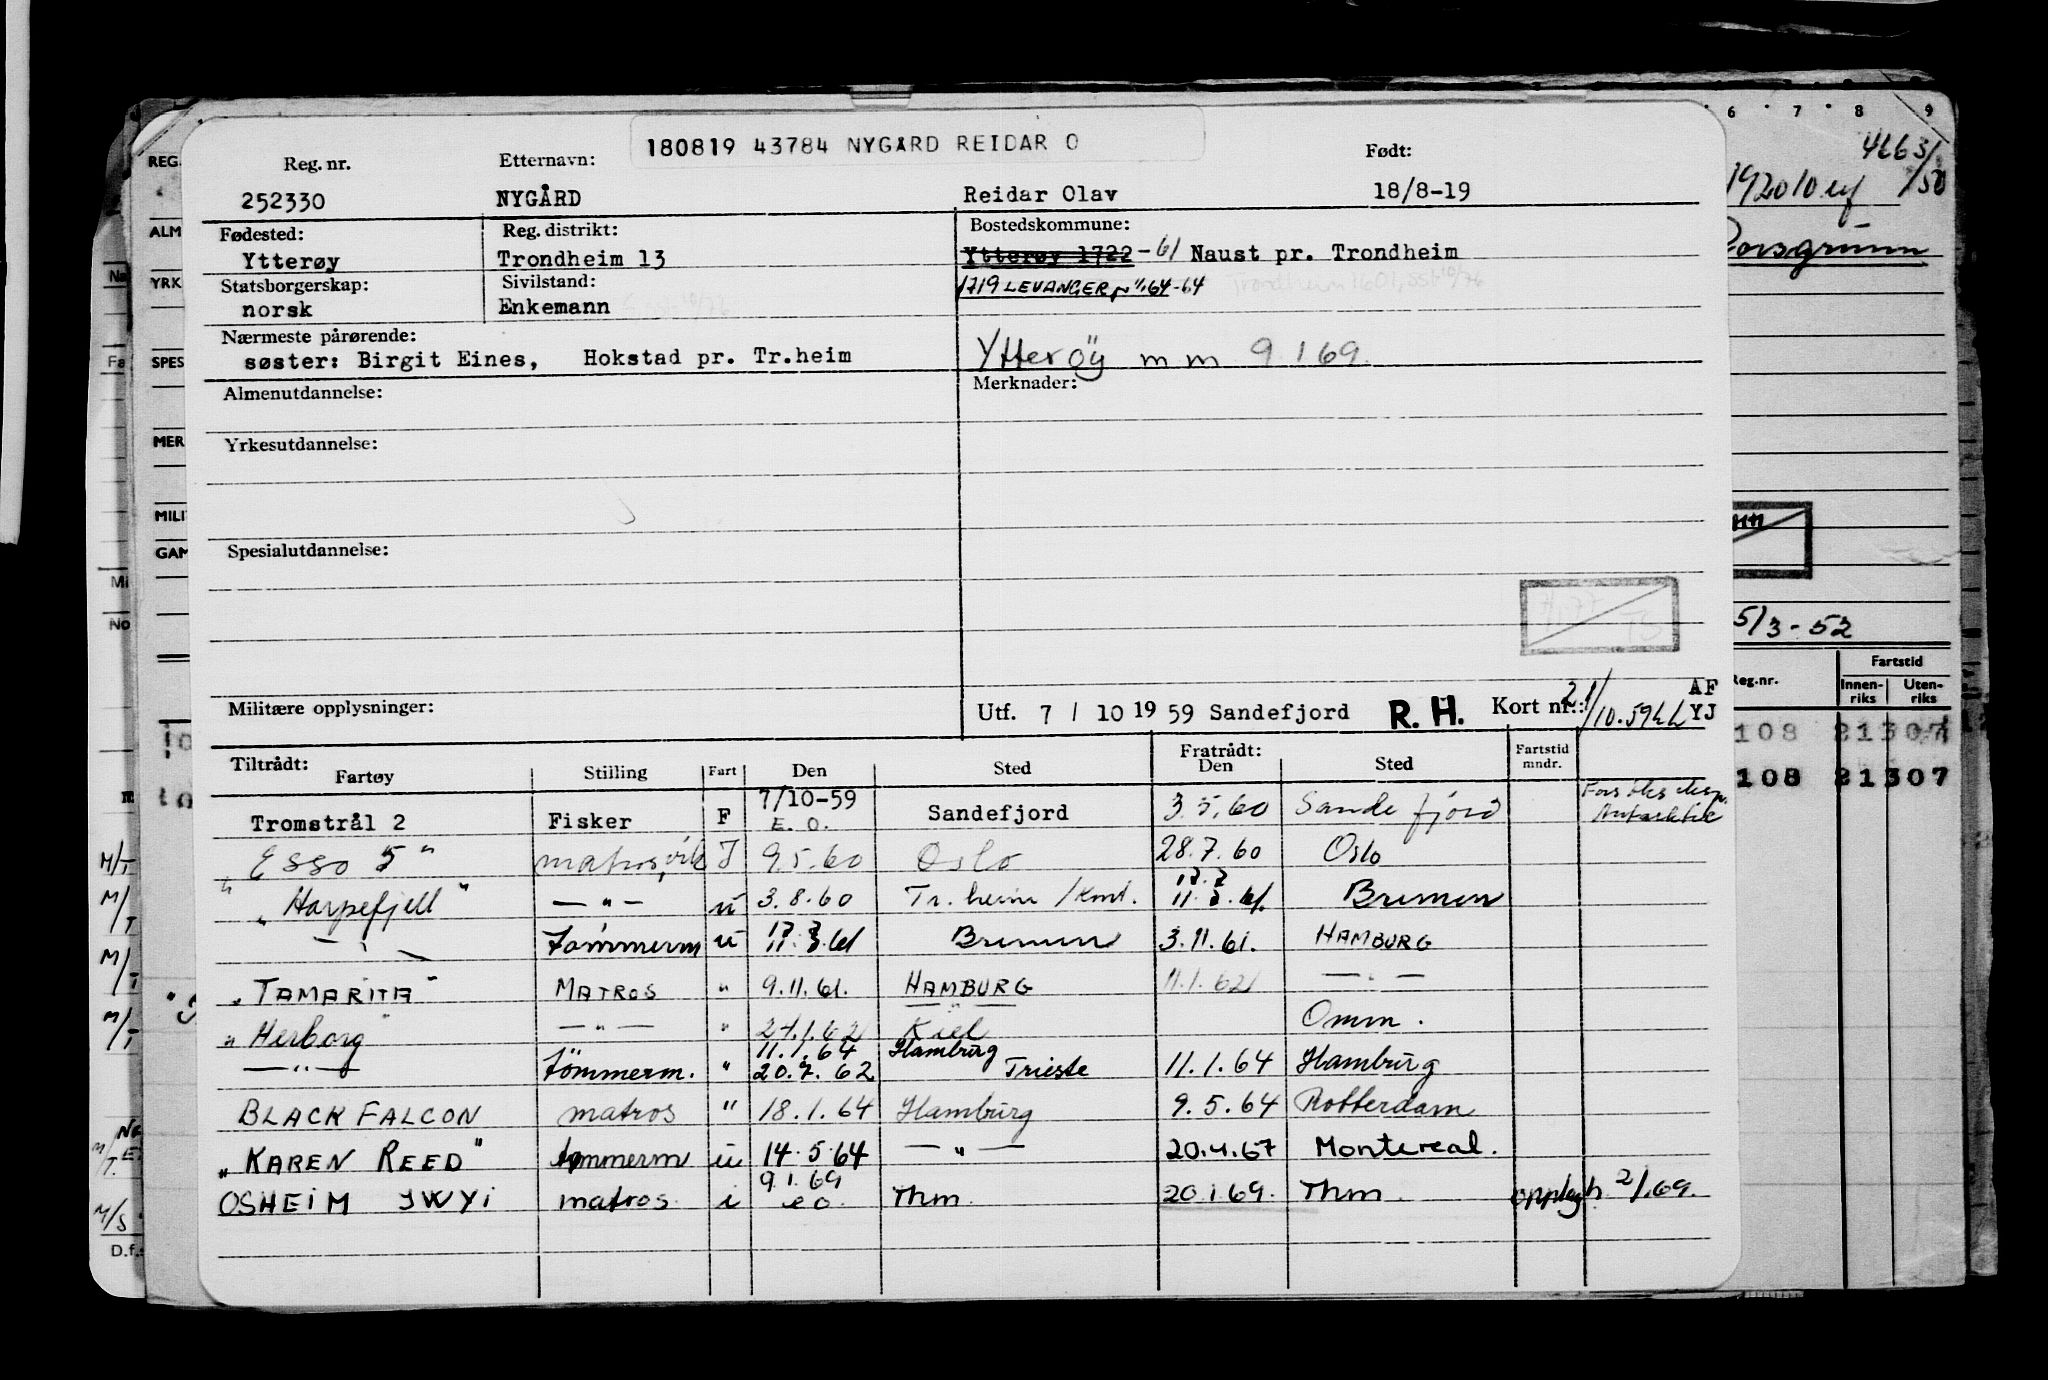 180819 43784 NYGÅRD REIDAR O
Reg. nr. Etternavn: Født:
252330 NYGÅRD Reidar Olav 18/8-19
Fødested: Reg. distrikt: Bostedskommune:
Ytterøy Trondheim 13 Ytterøy 1722 -61 Naust pr. Trondheim
Statsborgerskap: Sivilstand: 1719 LEVANGER 64-64
norsk Enkemann
Nærmeste pårørende:
søster: Birgit Eines, Hokstad pr. Tr.heim Ytterøy mm 9.1.69.
Almenutdannelse: Merknader:
Yrkesutdannelse:
Spesialutdannelse:
Militære opplysninger: Utf. 7 / 10 1959 Sandefjord R. H. Kort nr.: 2 1/10.59 AF YJ
Tiltrådt: Fartøy Stilling Fart Den Sted Fratrådt: Den Sted Fartstid mndr.
Tromstrål 2 Fisker F 7/10-59 E. O. Sandefjord 3.5.60 Sandefjord Antarktik
Esso 5" matros, vik I 9.5.60 Oslo 28.7.60 Oslo
M/T "Harpefjell" — " — u 3.8.60 Tr.heim /Kont. 11.3.61. Bremen
— " — Tømmerm u 11.3.61 Bremen 3.11.61. HAMBURG
"TAMARITA" MATROS " 9.11.61. HAMBURG 11.1.62 — " —
"Herborg" — " — " 24.1.62 Kiel Omm.
— " — Tømmerm. " 11.1.64 20.7.62 Hamburg Trieste 11.1.64 Hamburg
BLACK FALCON matros " 18.1.64 Hamburg 9.5.64 Rotterdam
"KAREN REED" tømmerm u 14.5.64 — " — 20.4.67 Montereal.
OSHEIM JWYI matros i 9.1.69 eo. Thm. 20.1.69. Thm. opplagh. 2/1.69.
REG.
ALM
YRK
SPES
MER
MILI
GAM
Na
Fa
Mi
No
M/T
M/T
M/T
M/T
M/T.
M/S
D.f.
6 7 8 9
4663/50
192010
Porsgrunn
5/3-52
Reg.nr. Fartstid
Innen-riks Uten-riks
108 21307
108 21307